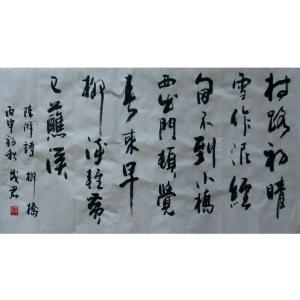 村路初晴
雪作泥經
旬不到小橋
西出門頓覺
春來早
柳染輕黃
已蘸溪
陸游詩 柳橋
丙申初秋 茂君